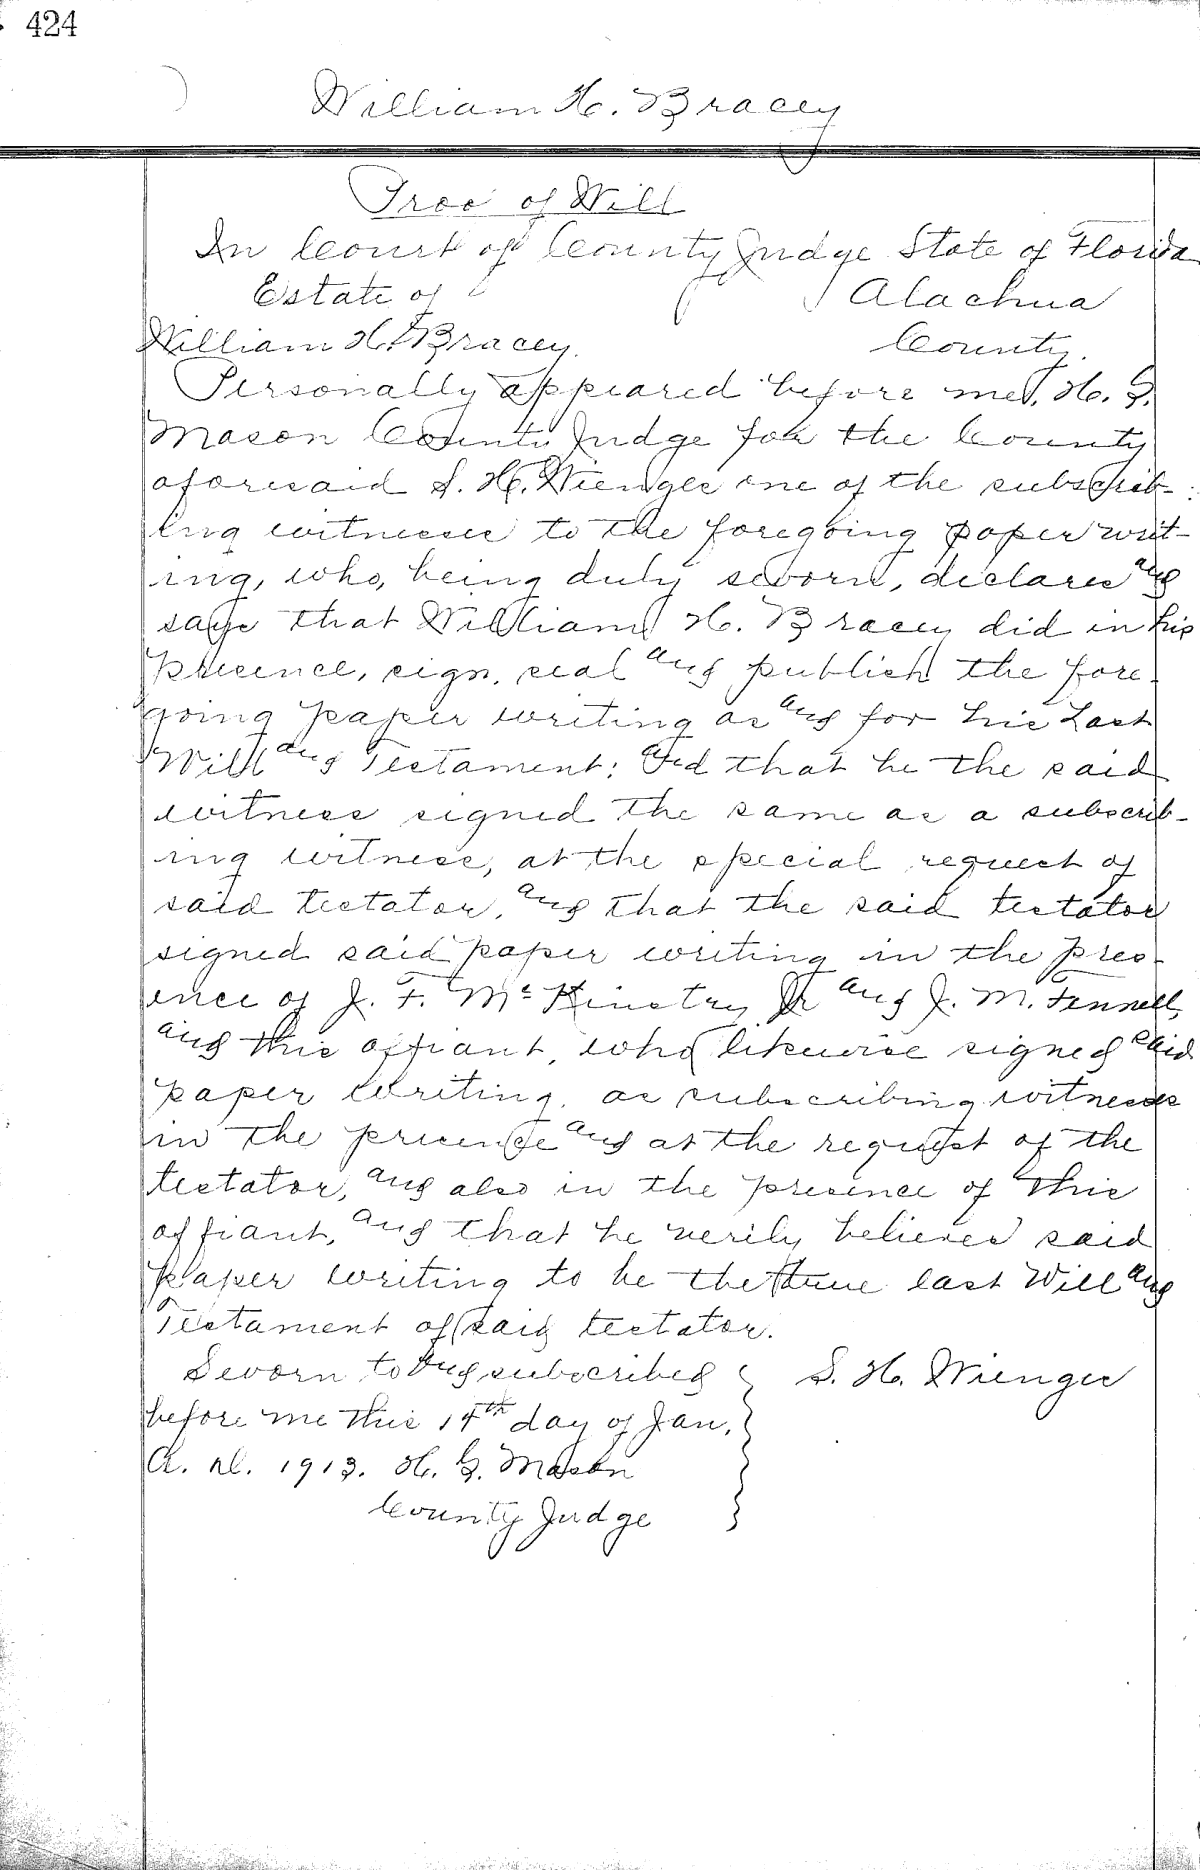 424
William H. Bracey
Proo of Will
In Court of County Judge State of Florida
Estate of Alachua
William H. Bracey. County.
Personally appeared before me, H. G.
Mason County Judge for the County
aforesaid S. H. Wienges one of the subscrib-
ing witnesses to the foregoing paper writ-
ing, who, being duly sworn, declares and
says that William H. Bracey did in his
presence, sign, seal and publish the fore-
going paper writing as and for his Last
Will and Testament; And that he the said
witness signed the same as a subscrib-
ing witness, at the special request of
said testator, and that the said testator
signed said paper writing in the pres-
ence of J. F. McKinstry Jr and J. M. Fennell,
and this affiant, who likewise signed said
paper writing, as subscribing witnesses
in the presence and at the request of the
testator, and also in the presence of this
affiant, and that he verily believes said
paper writing to be the true last Will and
Testament of said testator.
Sworn to and subscribed S. H. Wienges
before me this 14th day of Jan,
A. D. 1913. H. G. Mason
County Judge